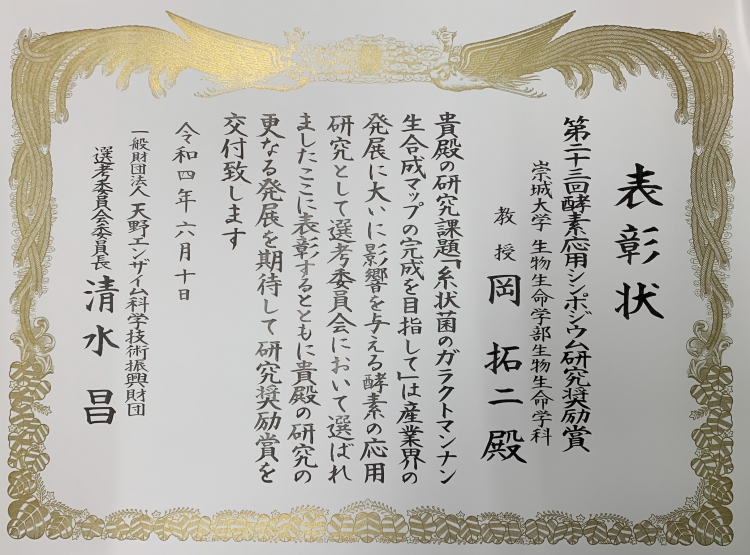 表彰状
第二十三回酵素応用シンポジウム研究奨励賞
崇城大学 生物生命学部生物生命学科
教授 岡 拓二 殿
貴殿の研究課題「糸状菌のガラクトマンナン
生合成マップの完成を目指して」は産業界の
発展に大いに影響を与える酵素の応用
研究として選考委員会において選ばれ
ましたここに表彰するとともに貴殿の研究の
更なる発展を期待して研究奨励賞を
交付致します
令和四年六月十日
一般財団法人 天野エンザイム科学技術振興財団
選考委員会委員長 清水 昌